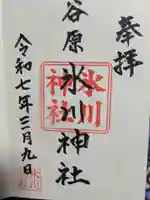 奉拝
谷原氷川神社
氷川神社
令和七年三月九日